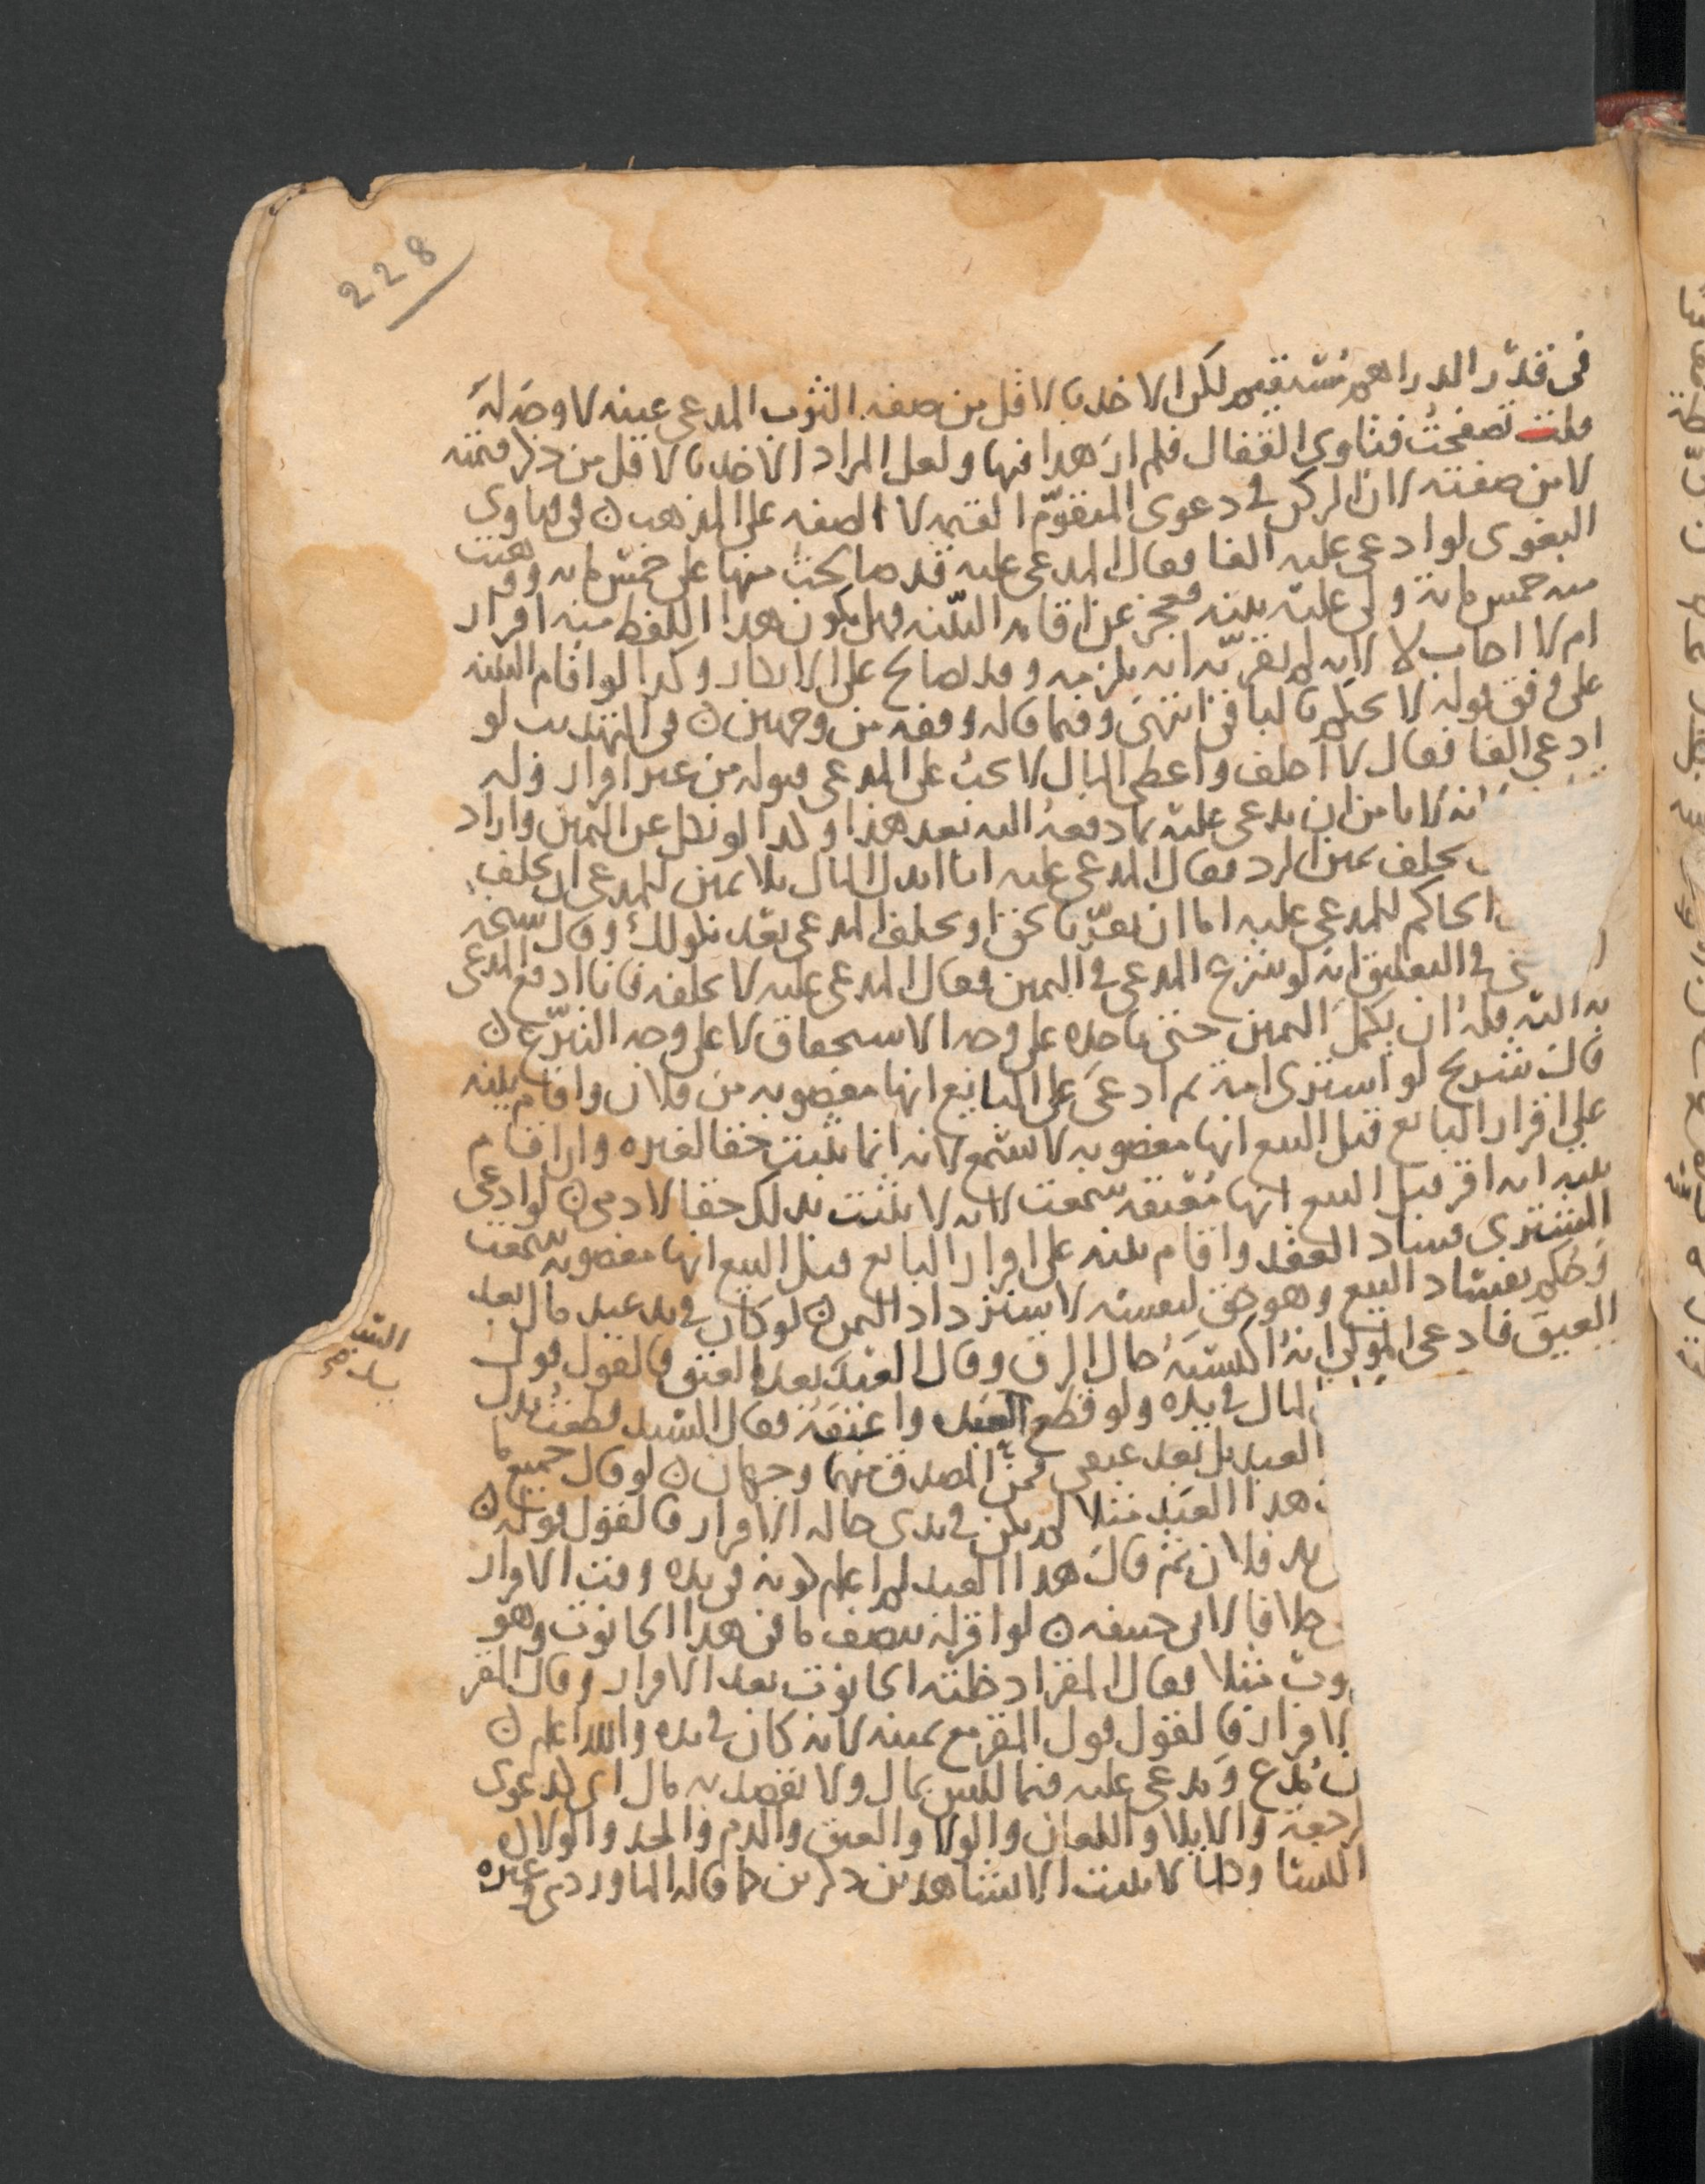 228
فى قدر الدراهم مستقيم لكن الاخذ بالاقل من صفه الثوب المدعى عينه لا وجه له
قلت تصفحت فتاوى القفال فلم ار هذا فيها ولعل المراد الاخذ بالاقل من ذكر قيمته
لا من صفته لان الركن في دعوى المتقوم القيمه لا الصفه على المذهب ٥ فى فتاوى
البغوى لو ادعى عليه الفا فقال المدعى عليه قد صالحت منها على خمس مايه ووهبت
منه خمس مايه ولى عليه بينه فعجز عن اقامه البينه فهل يكون هذا اللفظ منه اقرار
ام لا اجاب لا لانه لم يقر بانه يلزمه وقد يصالح على الانكار وكذا لو اقام البينه
على وفق قوله لا يحكم بالباقى انتهى وفيما قاله وقفه من وجهين ٥ فى التهذيب لو
ادعى الفا فقال لا احلف واعطى المال لا يجب على المدعى قبوله من غير اقرار وله
نه لا يامن ان يدعى عليه بما دفعه اليه بعد هذا وكذا لو نكل عن اليمين واراد
يحلف يمين الرد فقال المدعى عليه انا ابذل المال بلا يمين للمدعى ان يحلف
الحاكم للمدعى عليه اما ان تقر بالحق او يحلف المدعى بعد نكولك وقال شيخه
فى التعليق انه لو شرع المدعى في اليمين فقال المدعى عليه لا تحلفه فانا ادفع المدعى
به اليه فله ان يكمل اليمين حتى ياخذه على وجه الاستحقاق لا على وجه التبرع ٥
قال شريح لو اشترى امة ثم ادعى على البايع انها مغصوبه من فلان واقام بينه
على اقرار البايع قبل البيع انها مغصوبه لا تسمع لانه انما يثبت حقا لغيره وان اقام
بينه انه اقر قبل البيع انها معتقه سمعت لانه لا يثبت بذلك حقا لادمى ٥ لو ادعى
المشترى فساد العقد واقام بينه على اقرار البايع قبل البيع انها مغصوبه سمعت
وحكم بفساد البيع وهو حق لنفسه لاسترداد الثمن ٥ لو كان في يد عبد مال بعد
العتق فادعى المولى انه اكتسبه حال الرق وقال العبد بعد العتق فالقول قول
المال في يده ولو قطع العبد واعتقه فقال السيد قطعت قبل
العبد بل بعد عتقى فمن المصدق منهما وجهان ٥ لو قال جميع ما
هذا العبد مثلا لم يكن في يدى حاله الاقرار فالقول قوله ٥
يد فلان ثم قال هذا العبد لم اعلم كونه فى يده وقت الاقرار
خلافا لابى حنيفه ٥ لو اقر له بنصف ما فى هذا الحانوت وهو
وت مثلا فقال المقر ادخلته الحانوت بعد الاقرار وقال المقر
الاقرار فالقول قول المقر مع يمينه لانه كان في يده والله اعلم ٥
مدع ومدعى عليه فيما ليس بمال ولا يقصد به مال اى كدعوى
رجعة والايلا واللعان والولا والعتق والدم والحد والولاده
النسا وكلها لا يثبت الا بشاهدين ذكرين كما قاله الماوردى وغيره